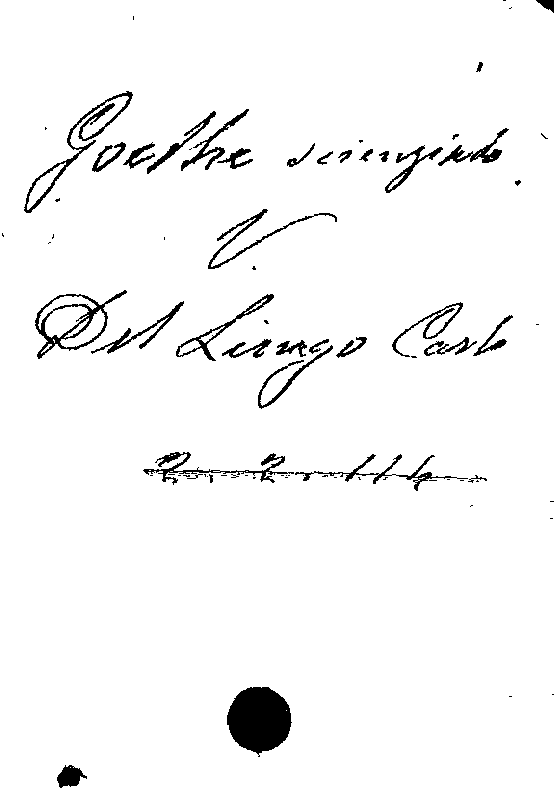 Goethe scienziato
V.
Del Lungo Carlo
2. 2. 114